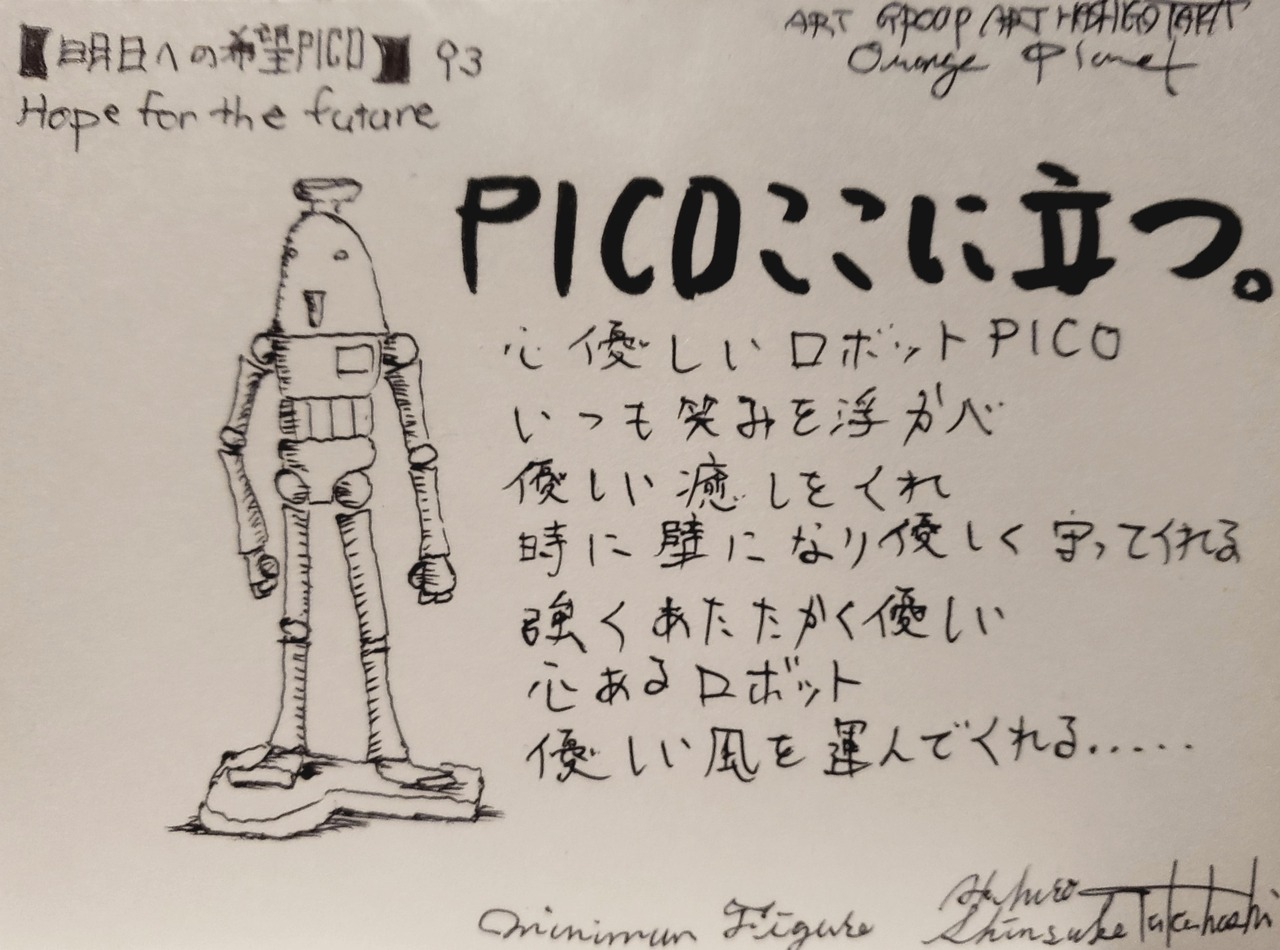 【明日への希望PICO】 93
Hope for the future
ART GROOP ART HASHIGO TART
Orange Planet
PICOここに立つ。
心優しいロボットPICO
いつも笑みを浮かべ
優しい癒しをくれ
時に壁になり優しく守ってくれる
強くあたたかく優しい
心あるロボット
優しい風を運んでくれる……
minimun Figure
Shinsuke Takahashi